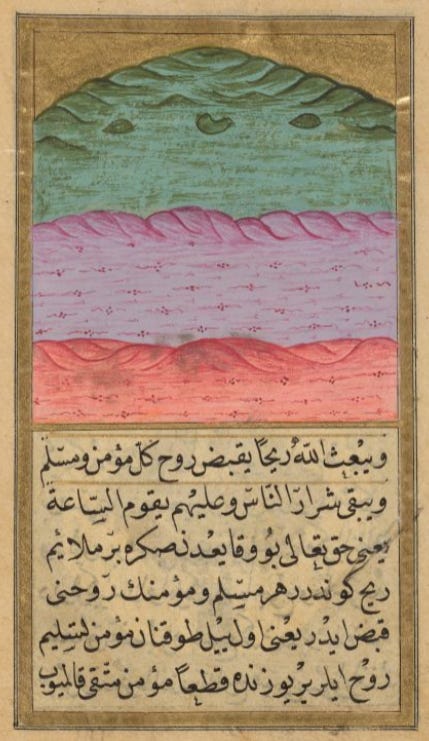 ويبعث الله ريحًا يقبض روح كلّ مؤمن ومسلم
ويبقى شرار النّاس وعليهم يقوم السّاعة
يعنى حق تعالى بو وقايعدنصكره بر ملايم
ريح كوندرر هر مسلم ومؤمنك روحنى
قبض ايدر يعنى اول ييل طوقنان مؤمن تسليم
روح ايلر ير يوزنده قطعاً مؤمن متّقى قالميوب